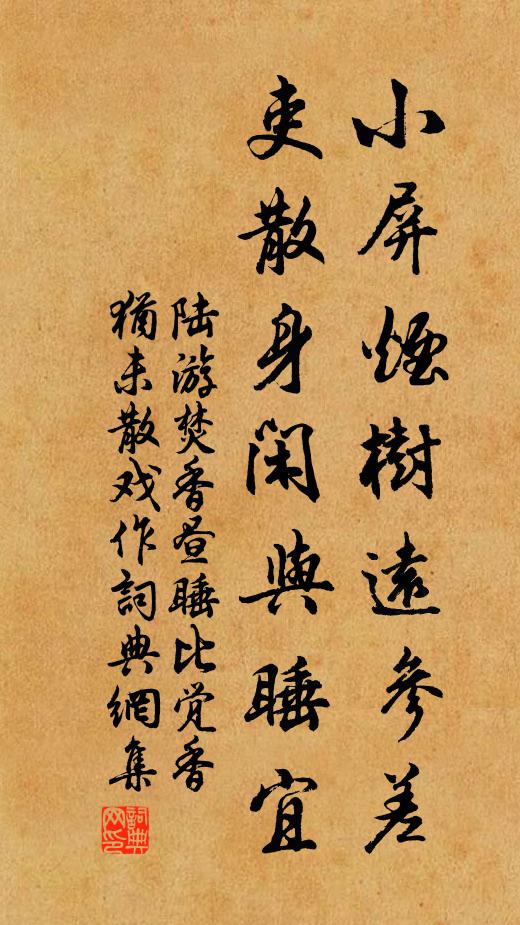 小屏煙樹遠參差
吏散身閑與睡宜
陆游焚香昼睡比觉香
猶未散戏作詞典網集
詞典网印